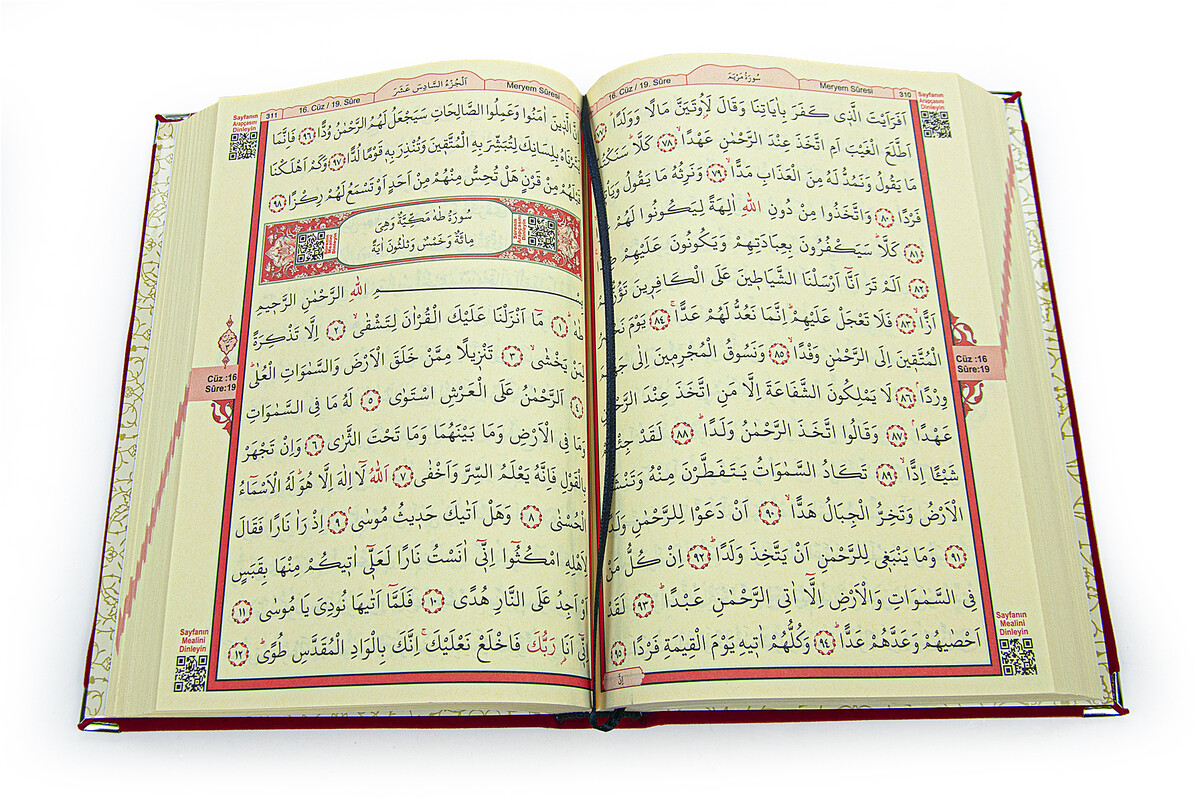 16. Cüz / 19. Sûre
سُورَةُ مَرْيَمَ
Meryem Sûresi
310
Sayfanın
Arapçasını
Dinleyin
اَفَرَاَيْتَ الَّذ۪ي كَفَرَ بِاٰيَاتِنَا وَقَالَ لَاُو۫تَيَنَّ مَالًا وَوَلَدًاۜ
اَطَّلَعَ الْغَيْبَ اَمِ اتَّخَذَ عِنْدَ الرَّحْمٰنِ عَهْدًاۙ ﴿٧٨﴾ كَلَّاۜ
مَا يَقُولُ وَنَمُدُّ لَهُ مِنَ الْعَذَابِ مَدًّاۙ ﴿٧٩﴾ وَنَرِثُهُ مَا يَقُولُ
فَرْدًا ﴿٨٠﴾ وَاتَّخَذُوا مِنْ دُونِ اللّٰهِ اٰلِهَةً لِيَكُونُوا لَهُمْ
﴿٨١﴾ كَلَّاۜ سَيَكْفُرُونَ بِعِبَادَتِهِمْ وَيَكُونُونَ عَلَيْهِمْ
﴿٨٢﴾ اَلَمْ تَرَ اَنَّٓا اَرْسَلْنَا الشَّيَاط۪ينَ عَلَى الْكَافِر۪ينَ
اَزًّاۙ ﴿٨٣﴾ فَلَا تَعْجَلْ عَلَيْهِمْۜ اِنَّمَا نَعُدُّ لَهُمْ عَدًّاۚ ﴿٨٤﴾ يَوْمَ
الْمُتَّق۪ينَ اِلَى الرَّحْمٰنِ وَفْدًاۙ ﴿٨٥﴾ وَنَسُوقُ الْمُجْرِم۪ينَ اِلٰى
وِرْدًاۢ ﴿٨٦﴾ لَا يَمْلِكُونَ الشَّفَاعَةَ اِلَّا مَنِ اتَّخَذَ عِنْدَ
عَهْدًاۢ ﴿٨٧﴾ وَقَالُوا اتَّخَذَ الرَّحْمٰنُ وَلَدًاۜ ﴿٨٨﴾ لَقَدْ
شَيْـًٔا اِدًّاۙ ﴿٨٩﴾ تَكَادُ السَّمٰوَاتُ يَتَفَطَّرْنَ مِنْهُ
الْاَرْضُ وَتَخِرُّ الْجِبَالُ هَدًّاۙ ﴿٩٠﴾ اَنْ دَعَوْا لِلرَّحْمٰنِ
﴿٩١﴾ وَمَا يَنْبَغ۪ي لِلرَّحْمٰنِ اَنْ يَتَّخِذَ وَلَدًاۜ ﴿٩٢﴾ اِنْ كُلُّ مَنْ
فِي السَّمٰوَاتِ وَالْاَرْضِ اِلَّٓا اٰتِي الرَّحْمٰنِ عَبْدًاۜ ﴿٩٣﴾ لَقَدْ
اَحْصٰيهُمْ وَعَدَّهُمْ عَدًّاۜ ﴿٩٤﴾ وَكُلُّهُمْ اٰت۪يهِ يَوْمَ الْقِيٰمَةِ فَرْدًا ﴿٩٥﴾
اِنَّ
Cüz :16
Sûre:19
Sayfanın
Mealini
Dinleyin
311
16. Cüz / 19. Sûre
اَلْجُزْءُ السَّادِسَ عَشَرَ
Meryem Sûresi
Sayfanın
Arapçasını
Dinleyin
الَّذ۪ينَ اٰمَنُوا وَعَمِلُوا الصَّالِحَاتِ سَيَجْعَلُ لَهُمُ الرَّحْمٰنُ وُدًّا ﴿٩٦﴾ فَاِنَّمَا
بِلِسَانِكَ لِتُبَشِّرَ بِهِ الْمُتَّق۪ينَ وَتُنْذِرَ بِه۪ قَوْمًا لُدًّا ﴿٩٧﴾ وَكَمْ اَهْلَكْنَا
قَبْلَهُمْ مِنْ قَرْنٍۜ هَلْ تُحِسُّ مِنْهُمْ مِنْ اَحَدٍ اَوْ تَسْمَعُ لَهُمْ رِكْزًا ﴿٩٨﴾
سُورَةُ طٰهٰ مَكِّيَّةٌ وَهِيَ
مِائَةٌ وَخَمْسٌ وَثَلٰثُونَ اٰيَةً
بِسْمِ اللّٰهِ الرَّحْمٰنِ الرَّح۪يمِ
طٰهٰۜ ﴿١﴾ مَٓا اَنْزَلْنَا عَلَيْكَ الْقُرْاٰنَ لِتَشْقٰىۙ ﴿٢﴾ اِلَّا تَذْكِرَةً
لِمَنْ يَخْشٰىۙ ﴿٣﴾ تَنْز۪يلًا مِمَّنْ خَلَقَ الْاَرْضَ وَالسَّمٰوَاتِ الْعُلٰىۜ
﴿٤﴾ اَلرَّحْمٰنُ عَلَى الْعَرْشِ اسْتَوٰى ﴿٥﴾ لَهُ مَا فِي السَّمٰوَاتِ
وَمَا فِي الْاَرْضِ وَمَا بَيْنَهُمَا وَمَا تَحْتَ الثَّرٰى ﴿٦﴾ وَاِنْ تَجْهَرْ
بِالْقَوْلِ فَاِنَّهُ يَعْلَمُ السِّرَّ وَاَخْفٰى ﴿٧﴾ اَللّٰهُ لَٓا اِلٰهَ اِلَّا هُوَۜ لَهُ الْاَسْمَٓاءُ
الْحُسْنٰى ﴿٨﴾ وَهَلْ اَتٰيكَ حَد۪يثُ مُوسٰىۢ ﴿٩﴾ اِذْ رَاٰ نَارًا فَقَالَ
لِاَهْلِهِ امْكُثُٓوا اِنّ۪ٓي اٰنَسْتُ نَارًا لَعَلّ۪ٓي اٰت۪يكُمْ مِنْهَا بِقَبَسٍ
اَوْ اَجِدُ عَلَى النَّارِ هُدًى ﴿١٠﴾ فَلَمَّٓا اَتٰيهَا نُودِيَ يَا مُوسٰى ﴿١١﴾
اِنّ۪ٓي اَنَا۬ رَبُّكَ فَاخْلَعْ نَعْلَيْكَۚ اِنَّكَ بِالْوَادِ الْمُقَدَّسِ طُوًىۜ ﴿١٢﴾
Cüz :16
Sûre:19
Sayfanın
Mealini
Dinleyin